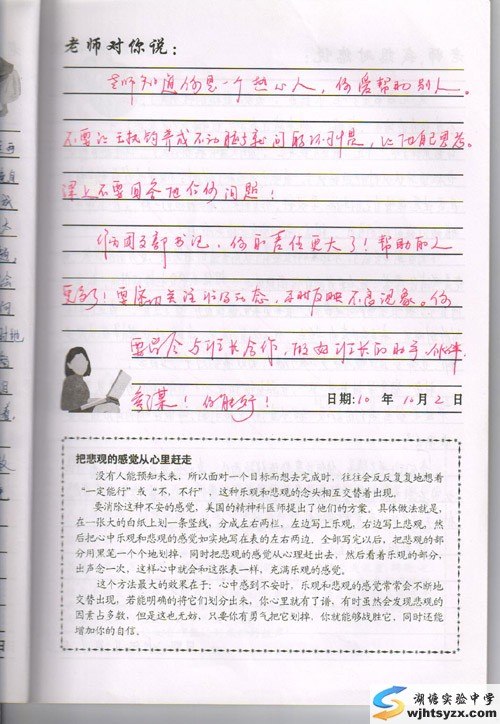 老师对你说：
老师知道你是一个热心人，你爱帮助别人。
不要让 养成不动脑 问的坏习惯，让他自己思考。
课上不要回答他任何问题！
作团支部书记，你的责任更大了！帮助的人
更多了！要 关注 动态，及时反映不良现象。你
要学会与班长合作，做好班长的助手 伙伴
参谋！你能行！
日期:10 年 10月 2 日
把悲观的感觉从心里赶走
没有人能预知未来，所以面对一个目标而想去完成时，往往会反反复复地想着
“一定能行”或“不，不行”，这种乐观和悲观的念头相互交替着出现。
要消除这种不安的感觉，美国的精神科医师提出了他们的方案，具体做法就是，
在一张大的白纸上划一条竖线，分成左右两栏，左边写上乐观，右边写上悲观，然
后把心中乐观和悲观的感觉如实地写在表的左右两边，全部写完以后，把悲观的部
分用黑笔一个个地划掉，同时把悲观的感觉从心理赶出去，然后看着乐观的部分，
出声念一次，这样心中就会和这张表一样，充满乐观的感觉。
这个方法最大的效果在于：心中感到不安时，乐观和悲观的感觉常常会不断地
交替出现，若能明确的将它们划分出来，你心里就有了谱，有时虽然会发现悲观的
因素占多数，但是这也无妨，只要你有勇气把它划掉，你就能够战胜它，同时还能
增加你的自信。
湖塘实验中学
wjhtsyzx.com